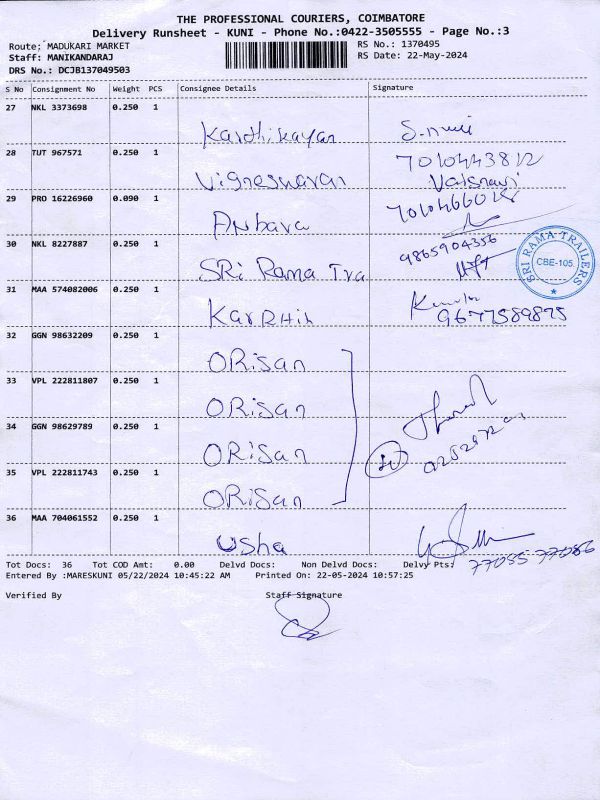 THE PROFESSIONAL COURIERS, COIMBATORE
Delivery Runsheet - KUNI - Phone No.:0422-3505555 - Page No.:3
Route: MADUKARI MARKET RS No.: 1370495
Staff: MANIKANDARAJ RS Date: 22-May-2024
DRS No.: DCJB137049503
S No Consignment No Weight PCS Consignee Details Signature
27 NKL 3373698 0.250 1 Karthikayan
28 TUT 967571 0.250 1 Vigneswaran 7010443812
Vaisnavi
29 PRO 16226960 0.090 1 Anbara
30 NKL 8227887 0.250 1 SRi Rama Tra 9865904356
SRI RAMA TRAILERS
CBE-105.
31 MAA 574082006 0.250 1 KarRHik 9677589875
32 GGN 98632209 0.250 1 ORisan
33 VPL 222811807 0.250 1 ORisan
34 GGN 98629789 0.250 1 ORisan
35 VPL 222811743 0.250 1 ORisan
36 MAA 704061552 0.250 1 Usha
77055 77086
Tot Docs: 36 Tot COD Amt: 0.00 Delvd Docs: Non Delvd Docs: Delvy Pts:
Entered By :MARESKUNI 05/22/2024 10:45:22 AM Printed On: 22-05-2024 10:57:25
Verified By Staff Signature